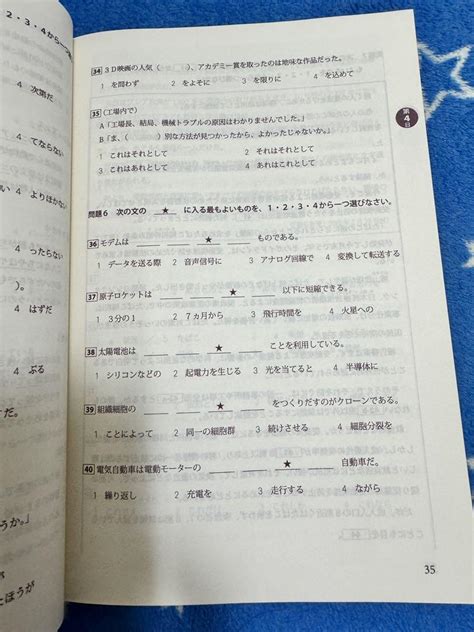 2・3・4から一つ選
4 次第だ
4 てならない
4 よりほかない
4 ったらない
)。
4 はずだ
4 ぶる
だ。
うか。」
たほうが
34 3D映画の人気（　　）、アカデミー賞を取ったのは地味な作品だった。
1 を問わず　2 をよそに　3 を限りに　4 を込めて
35 （工場内で）
A「工場長、結局、機械トラブルの原因はわかりませんでした。」
B「ま、（　　）別な方法が見つかったから、よかったじゃないか。」
1 これはそれとして　2 それはそれとして
3 これはあれとして　4 あれはこれとして
第4回
問題6 次の文の ★ に入る最もよいものを、1・2・3・4から一つ選びなさい。
36 モデムは ＿＿ ＿＿ ＿＿ ★ ものである。
1 データを送る際　2 音声信号に　3 アナログ回線で　4 変換して転送する
37 原子ロケットは ＿＿ ＿＿ ★ ＿＿ 以下に短縮できる。
1 3分の1　2 7ヵ月から　3 飛行時間を　4 火星への
38 太陽電池は ＿＿ ★ ＿＿ ＿＿ ことを利用している。
1 シリコンなどの　2 起電力を生じる　3 光を当てると　4 半導体に
39 組織細胞の ＿＿ ＿＿ ★ ＿＿ をつくりだすのがクローンである。
1 ことによって　2 同一の細胞群　3 続けさせる　4 細胞分裂を
40 電気自動車は電動モーターの ＿＿ ＿＿ ★ ＿＿ 自動車だ。
1 繰り返し　2 充電を　3 走行する　4 ながら
35